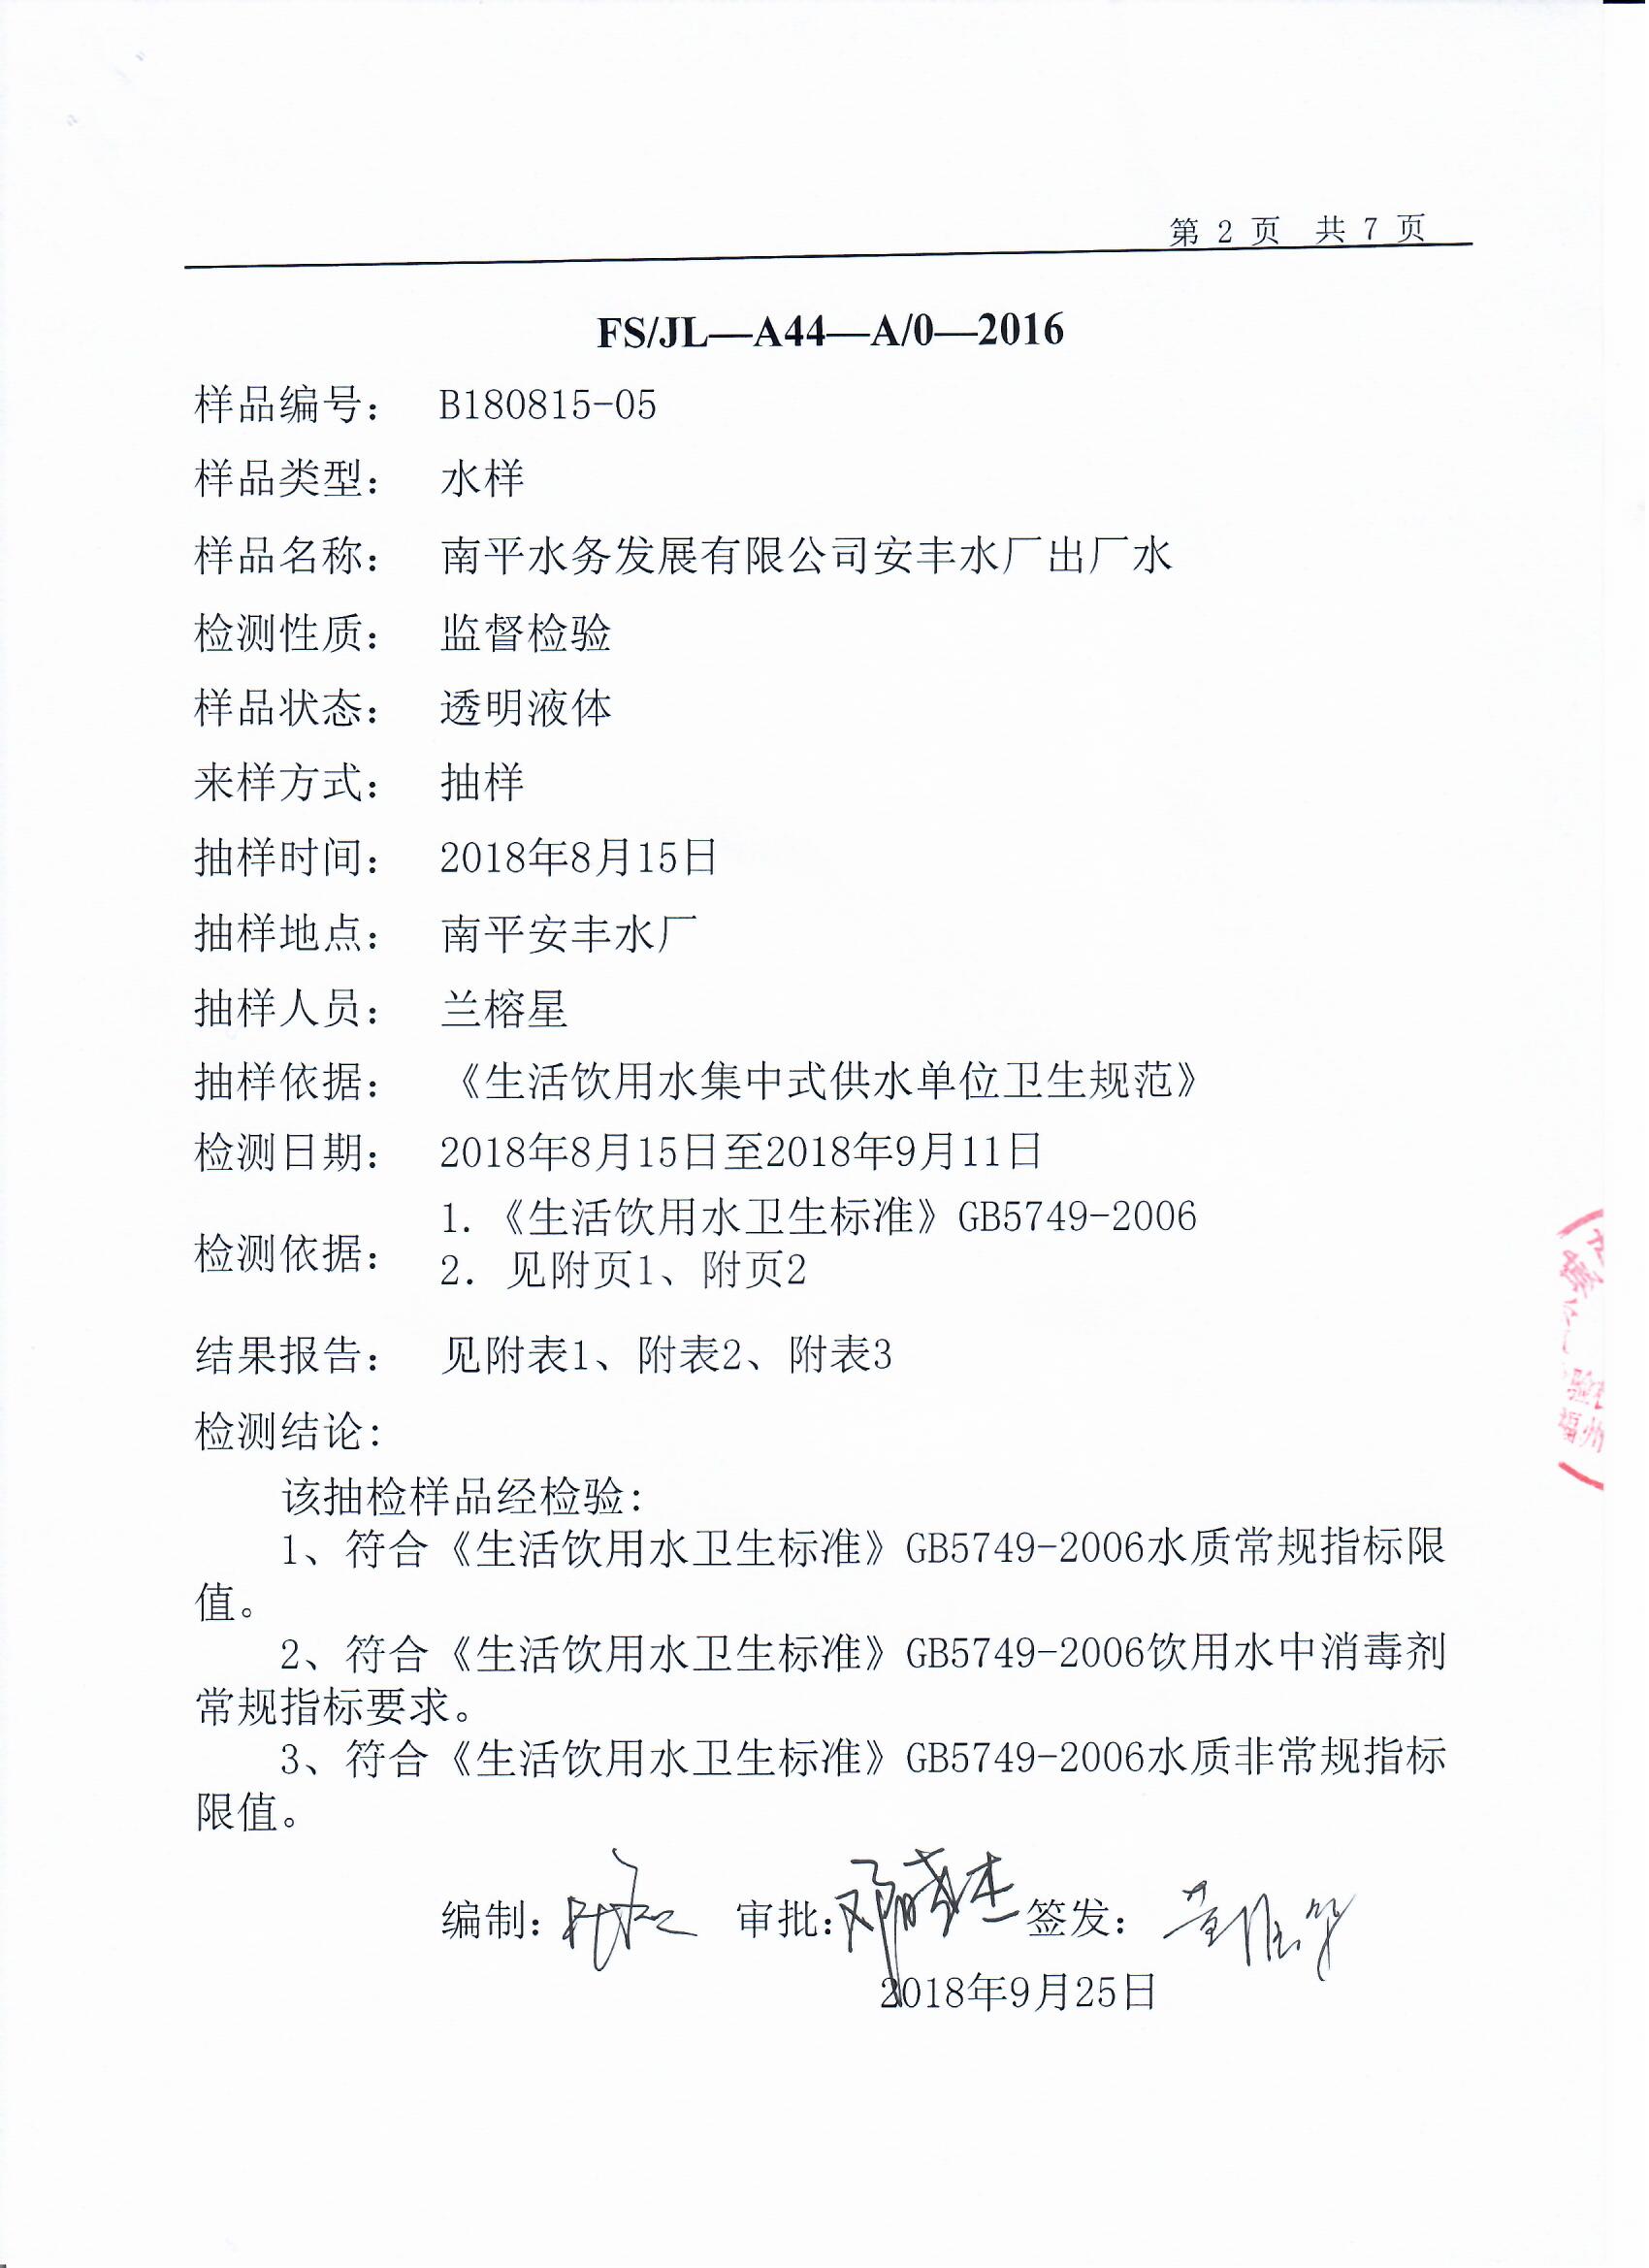 第 2 页 共 7 页
FS/JL—A44—A/0—2016
样品编号： B180815-05
样品类型： 水样
样品名称： 南平水务发展有限公司安丰水厂出厂水
检测性质： 监督检验
样品状态： 透明液体
来样方式： 抽样
抽样时间： 2018年8月15日
抽样地点： 南平安丰水厂
抽样人员： 兰榕星
抽样依据： 《生活饮用水集中式供水单位卫生规范》
检测日期： 2018年8月15日至2018年9月11日
检测依据： 1.《生活饮用水卫生标准》GB5749-2006
2. 见附页1、附页2
结果报告： 见附表1、附表2、附表3
检测结论：
该抽检样品经检验：
1、符合《生活饮用水卫生标准》GB5749-2006水质常规指标限
值。
2、符合《生活饮用水卫生标准》GB5749-2006饮用水中消毒剂
常规指标要求。
3、符合《生活饮用水卫生标准》GB5749-2006水质非常规指标
限值。
编制： 审批： 签发：
2018年9月25日
福州